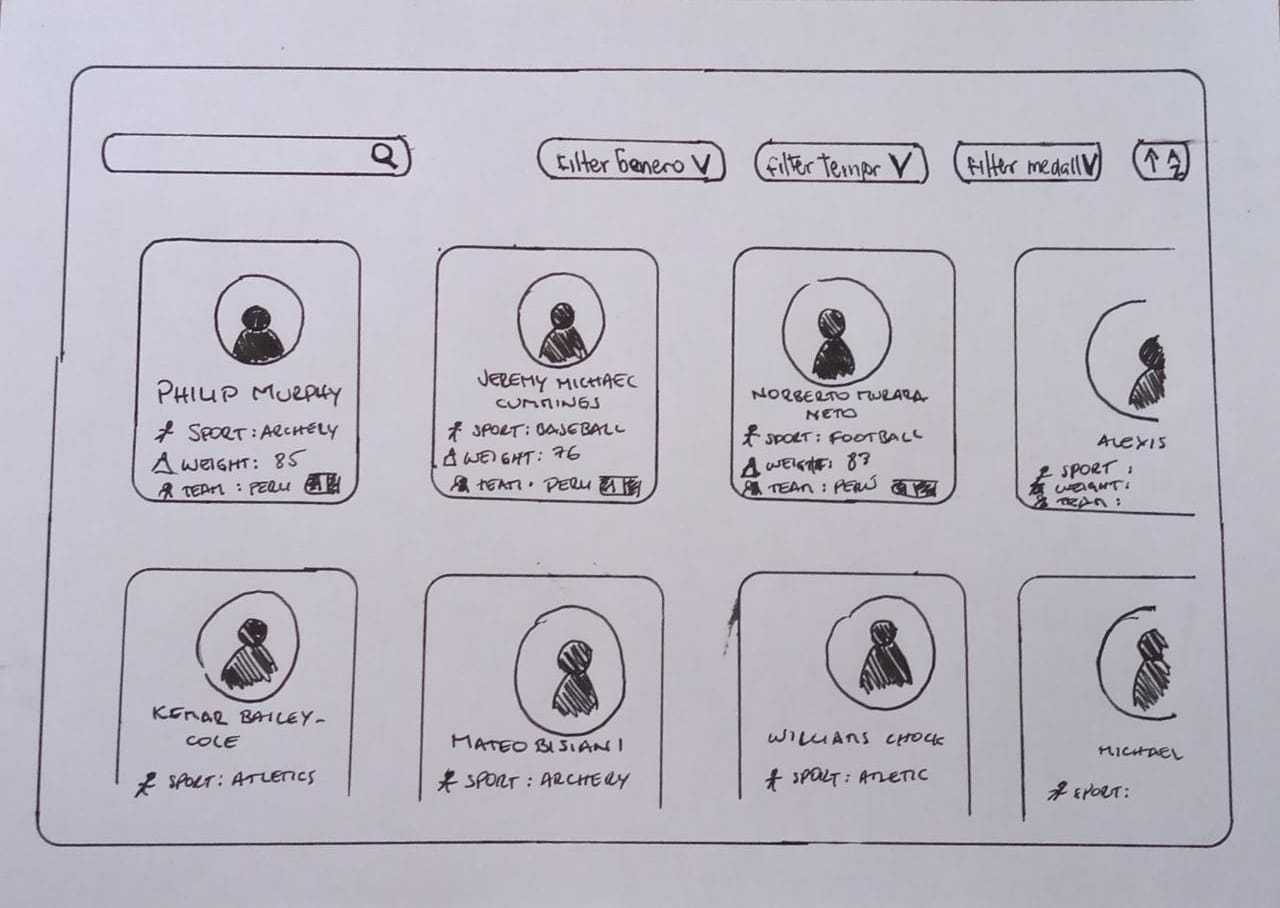 Filter Genero V
Filter tempr V
Filter medall V
↑ A
Z
PHILIP MURPHY
SPORT: ARCHERY
WEIGHT: 85
TEAM: PERU
JEREMY MICHAEL
CUMMINGS
SPORT: BASEBALL
WEIGHT: 76
TEAM: PERU
NORBERTO MURARA
NETO
SPORT: FOOTBALL
WEIGHT: 83
TEAM: PERÚ
ALEXIS
SPORT:
WEIGHT:
TEAM:
KEMAR BAILEY-
COLE
SPORT: ATLETICS
MATEO BISIANI
SPORT: ARCHERY
WILLIAMS CHOCK
SPORT: ATLETIC
MICHAEL
SPORT: